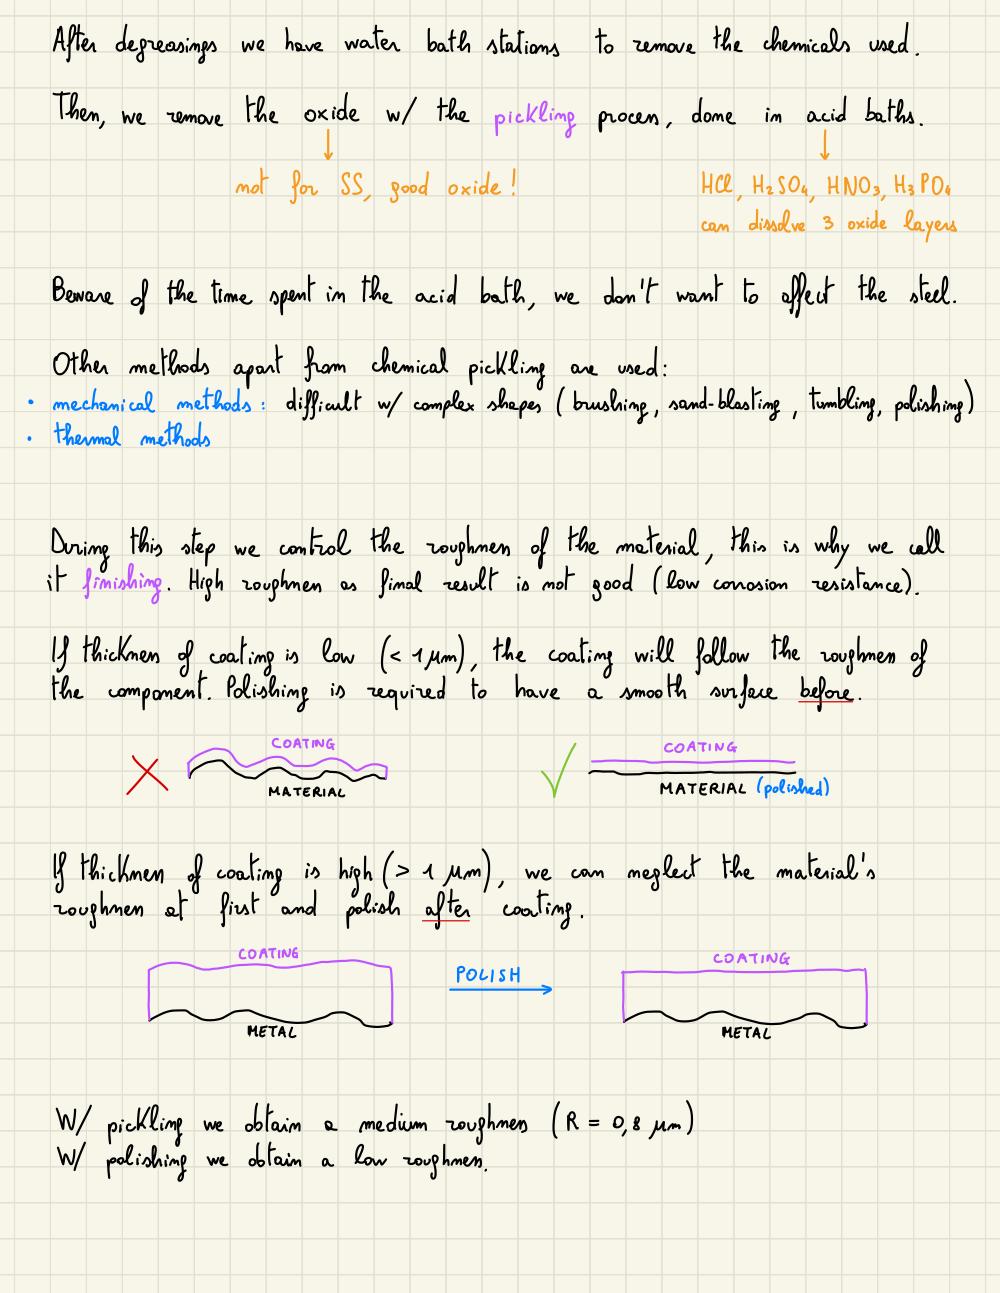 After degreasings we have water bath stations to remove the chemicals used.
Then, we remove the oxide w/ the pickling process, done in acid baths.
not for SS, good oxide!
HCl, H₂SO₄, HNO₃, H₃PO₄
can dissolve 3 oxide layers
Beware of the time spent in the acid bath, we don't want to affect the steel.
Other methods apart from chemical pickling are used:
• mechanical methods: difficult w/ complex shapes (brushing, sand-blasting, tumbling, polishing)
• thermal methods
During this step we control the roughness of the material, this is why we call
it finishing. High roughness as final result is not good (low corrosion resistance).
If thickness of coating is low (< 1 μm), the coating will follow the roughness of
the component. Polishing is required to have a smooth surface before.
COATING
MATERIAL
COATING
MATERIAL (polished)
If thickness of coating is high (> 1 μm), we can neglect the material's
roughness at first and polish after coating.
COATING
METAL
POLISH
COATING
METAL
W/ pickling we obtain a medium roughness (R = 0,8 μm)
W/ polishing we obtain a low roughness.